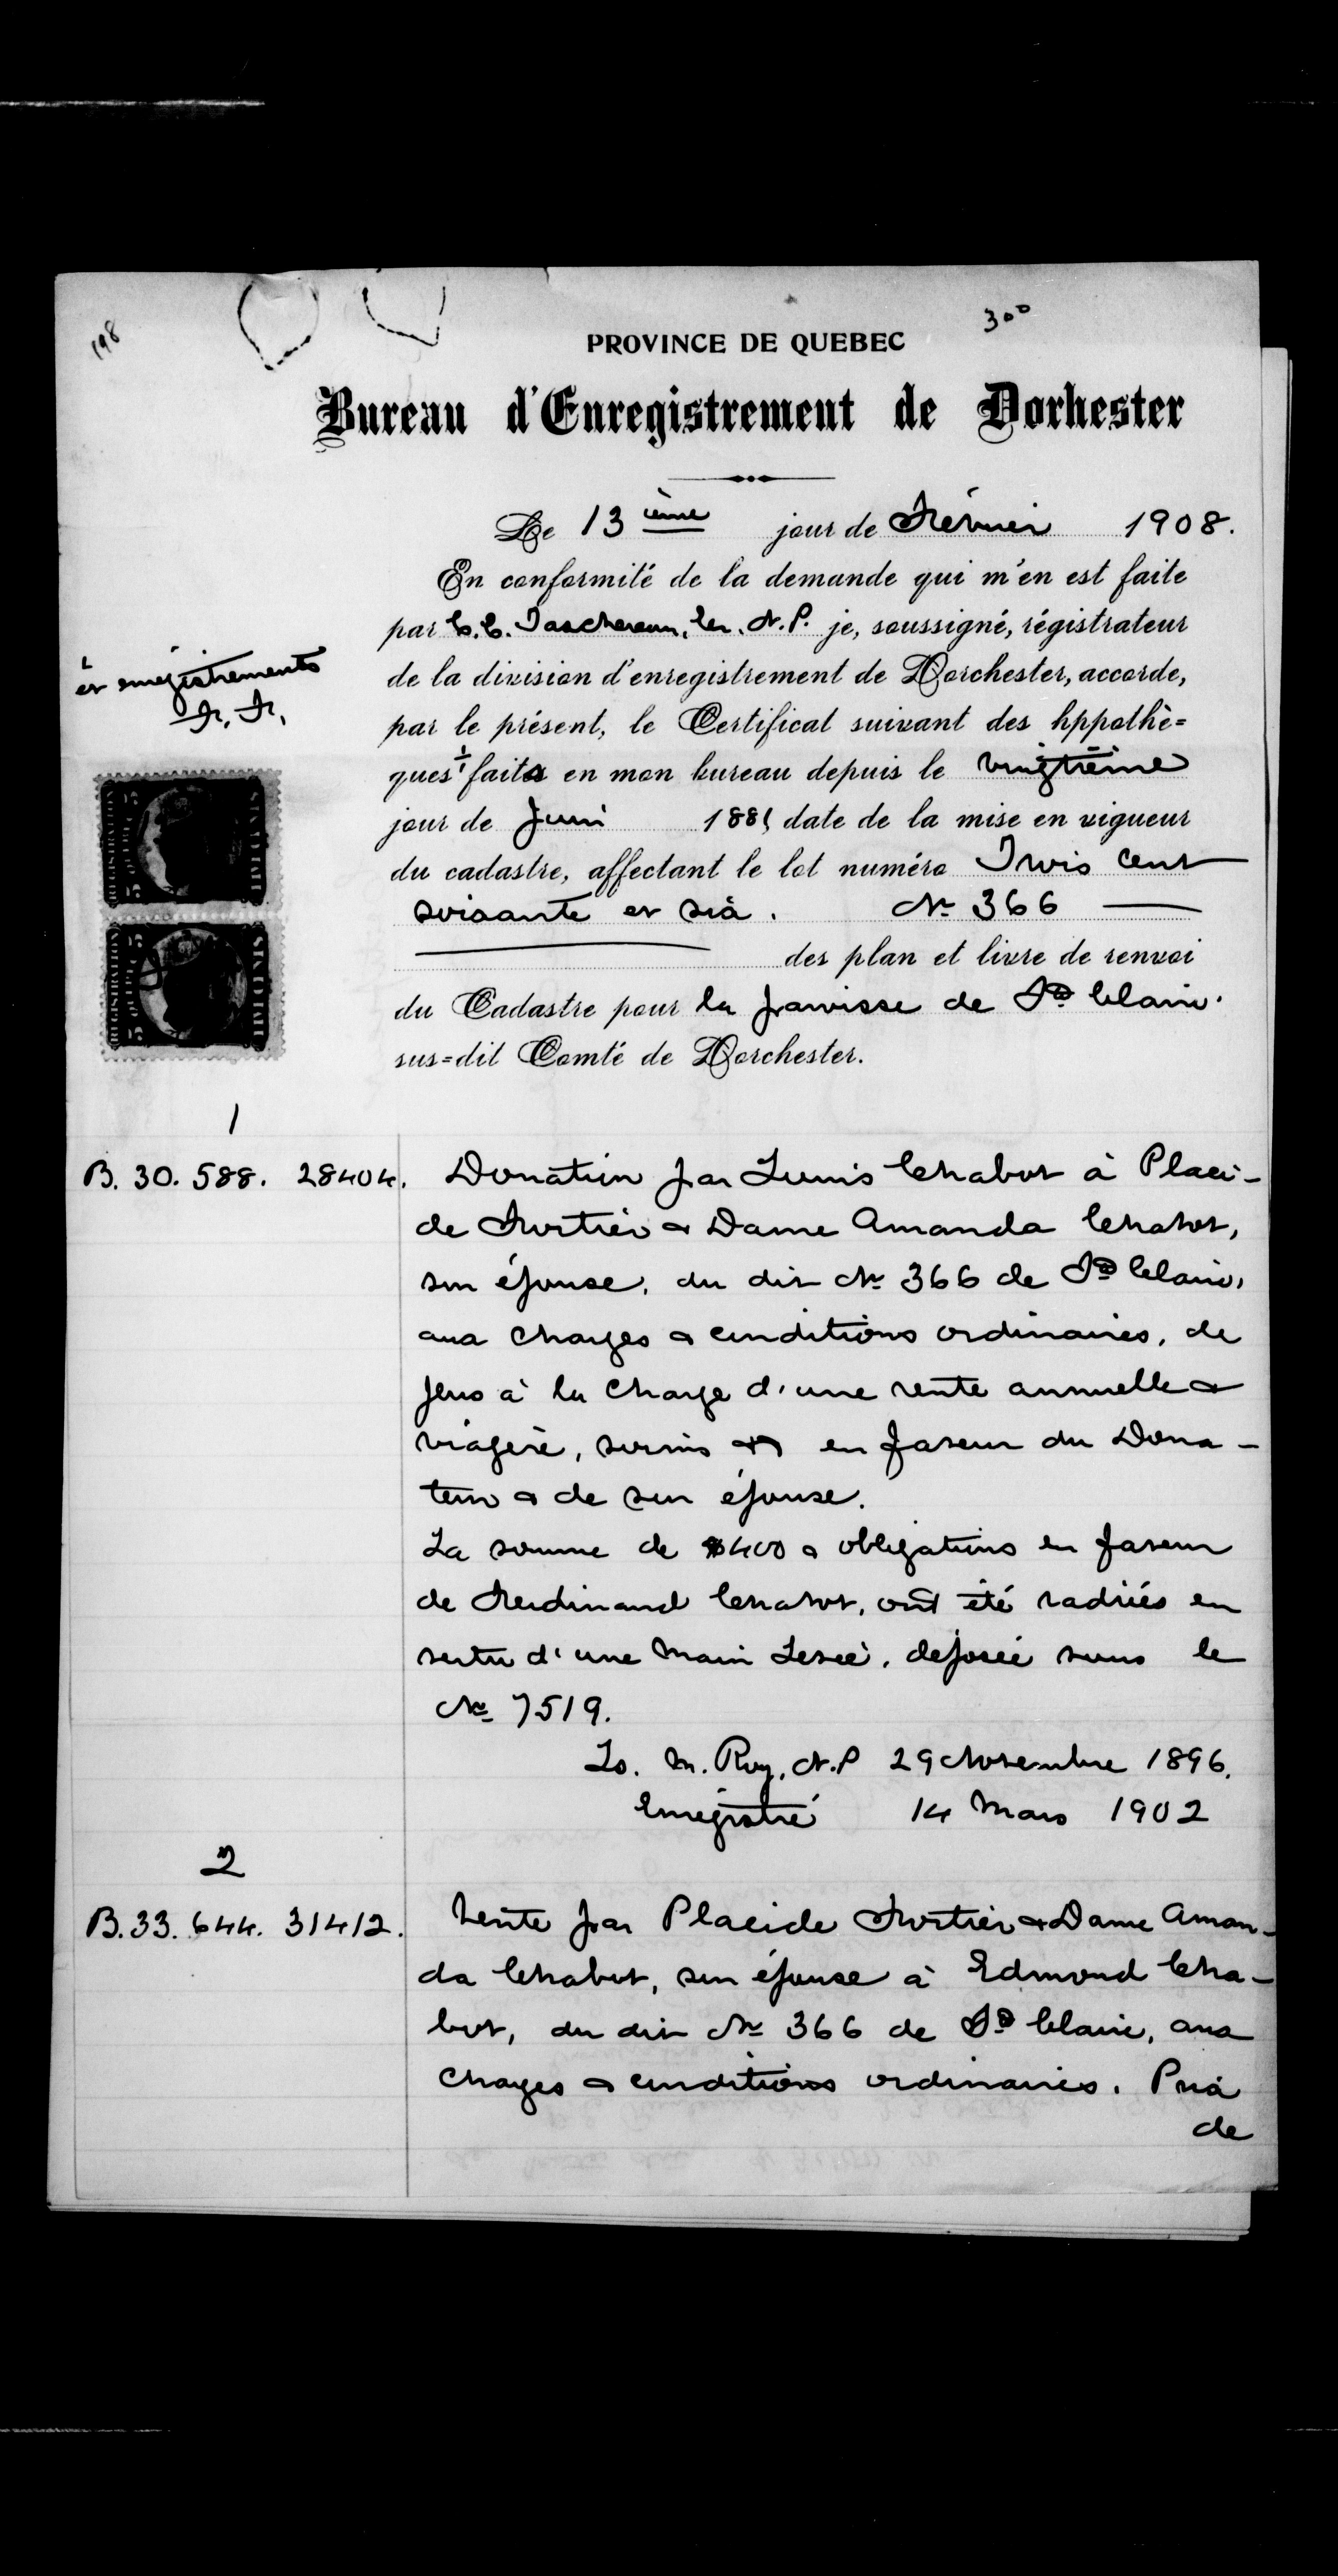 198
300
PROVINCE DE QUEBEC
Bureau d'Enregistrement de Dorhester
Le 13 ième jour de Février 1908.
En conformité de la demande qui m'en est faite
par C. C. Taschereau, Ecr. N. P. je, soussigné, régistrateur
de la division d'enregistrement de Dorchester, accorde,
par le présent, le Certificat suivant des hppothè=
ques faits en mon bureau depuis le vingtième
jour de Juin 1881 date de la mise en vigueur
du cadastre, affectant le lot numéro Trois cent
soixante et six. No 366
des plan et livre de renvoi
du Cadastre pour la paroisse de Ste Claire.
sus=dit Comté de Dorchester.
et enregistrements
REGISTRATION QUEBEC
REGISTRATION QUEBEC
1
B. 30. 588. 28404.
Donation par Louis Chabot à Placi-
de Fortier & Dame Amanda Chabot,
son épouse, du dit No 366 de Ste Claire,
aux charges & conditions ordinaires, de
plus à la charge d'une rente annuelle &
viagère, soins & en faveur du Dona-
teur & de son épouse.
La somme de $400 & obligations en faveur
de Ferdinand Chabot, ont été radiées en
vertu d'une Main Levée, déposée sous le
No 7519.
Ls. M. Roy, N.P 29 Novembre 1896.
Enregistré 14 Mars 1902
2
B. 33. 644. 31412.
Vente par Placide Fortier & Dame Aman-
da Chabot, son épouse à Edmond Cha-
bot, du dit No 366 de Ste Claire, aux
charges & conditions ordinaires. Prix
de